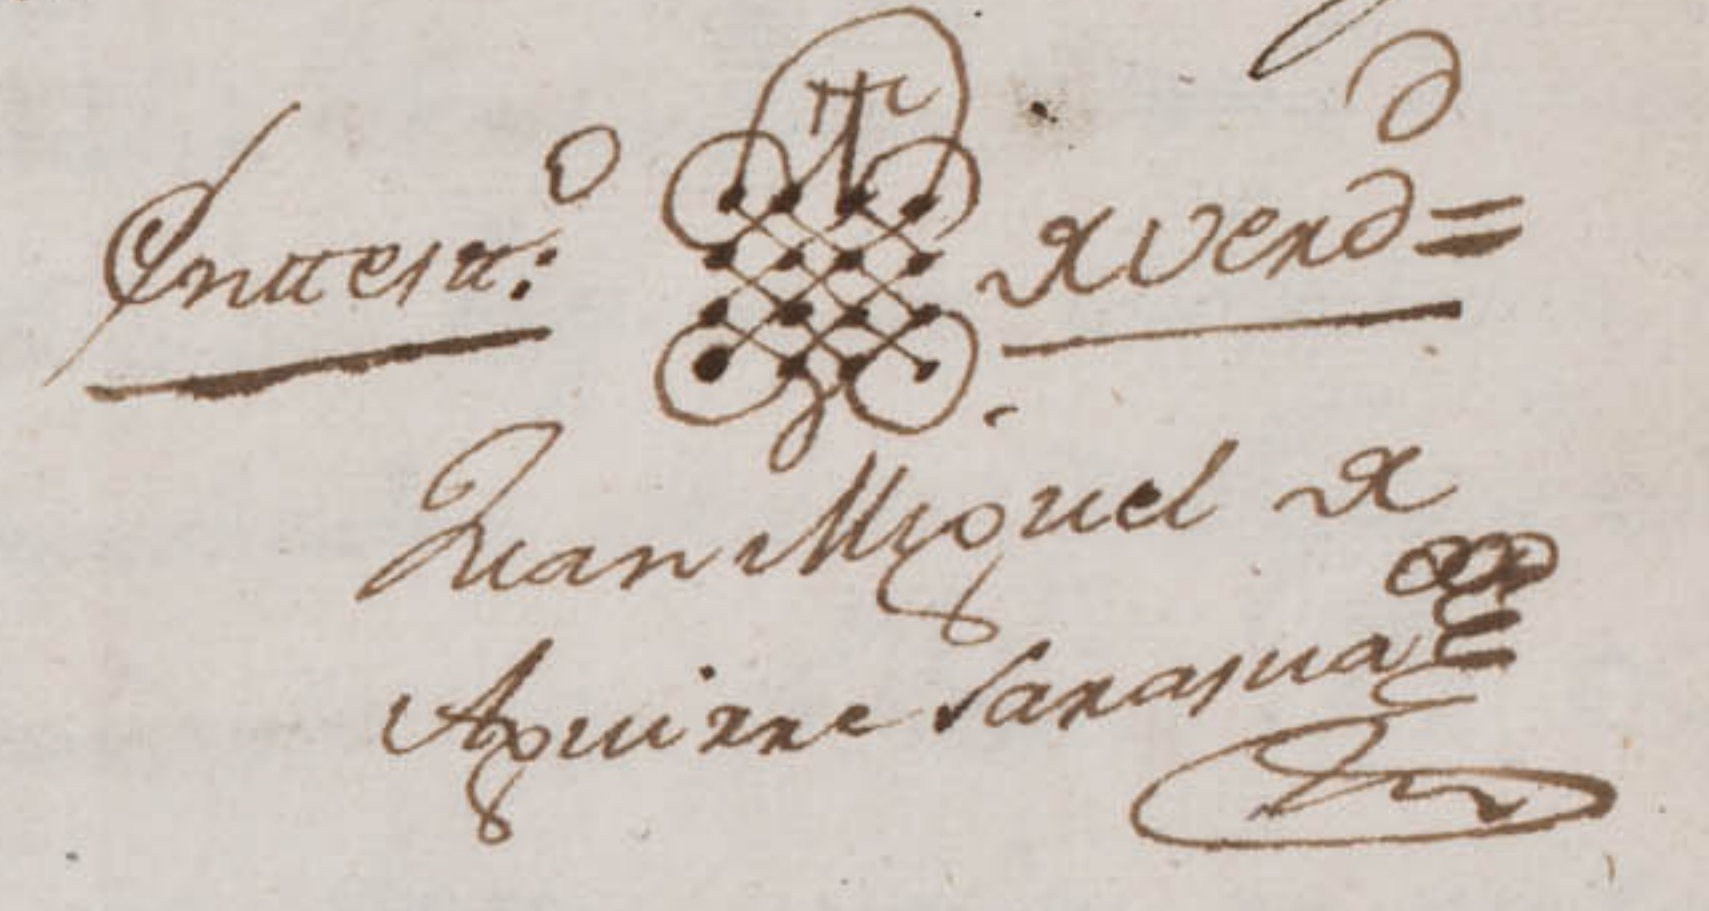 En testi:º de verd=
Juan Miguel de
Aguirre Sarasua=